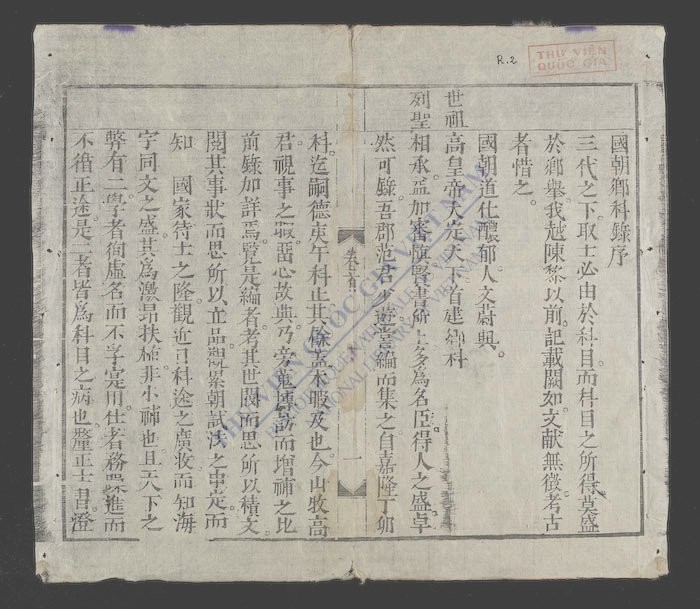 R.2
THƯ VIỆN
QUỐC GIA
國朝鄉科錄序
三代之下。取士必由於科目。而科目之所得。莫盛
於鄉舉。我越陳黎以前。記載闕如。文献無徵。考古
者惜之。
國朝道化醲郁。人文蔚興。
世祖高皇帝大定天下。首建鄉科
列聖相承。益加審慎。賢書所上。多為名臣。得人之盛。卓
然可錄。吾郡范君少遊嘗編而集之。自嘉隆丁卯
卷首
一
科。迄嗣德庚午科止。其餘蓋未暇及也。今山牧高
君。視事之暇。留心故典。乃旁蒐博訪而增補之。比
前錄加詳焉。覽是編者。考其世閥。而思所以積文。
閱其事狀。而思所以立品。觀累朝試法之申定。而
知 國家待士之隆。觀近日科途之廣收。而知海
宇同文之盛。其為激昂扶植。非小補也。且天下之
弊有二。學者徇虛名而不孚寔用。仕者務躁進而
不循正途。是二者皆為科目之病也。釐正士習。澄